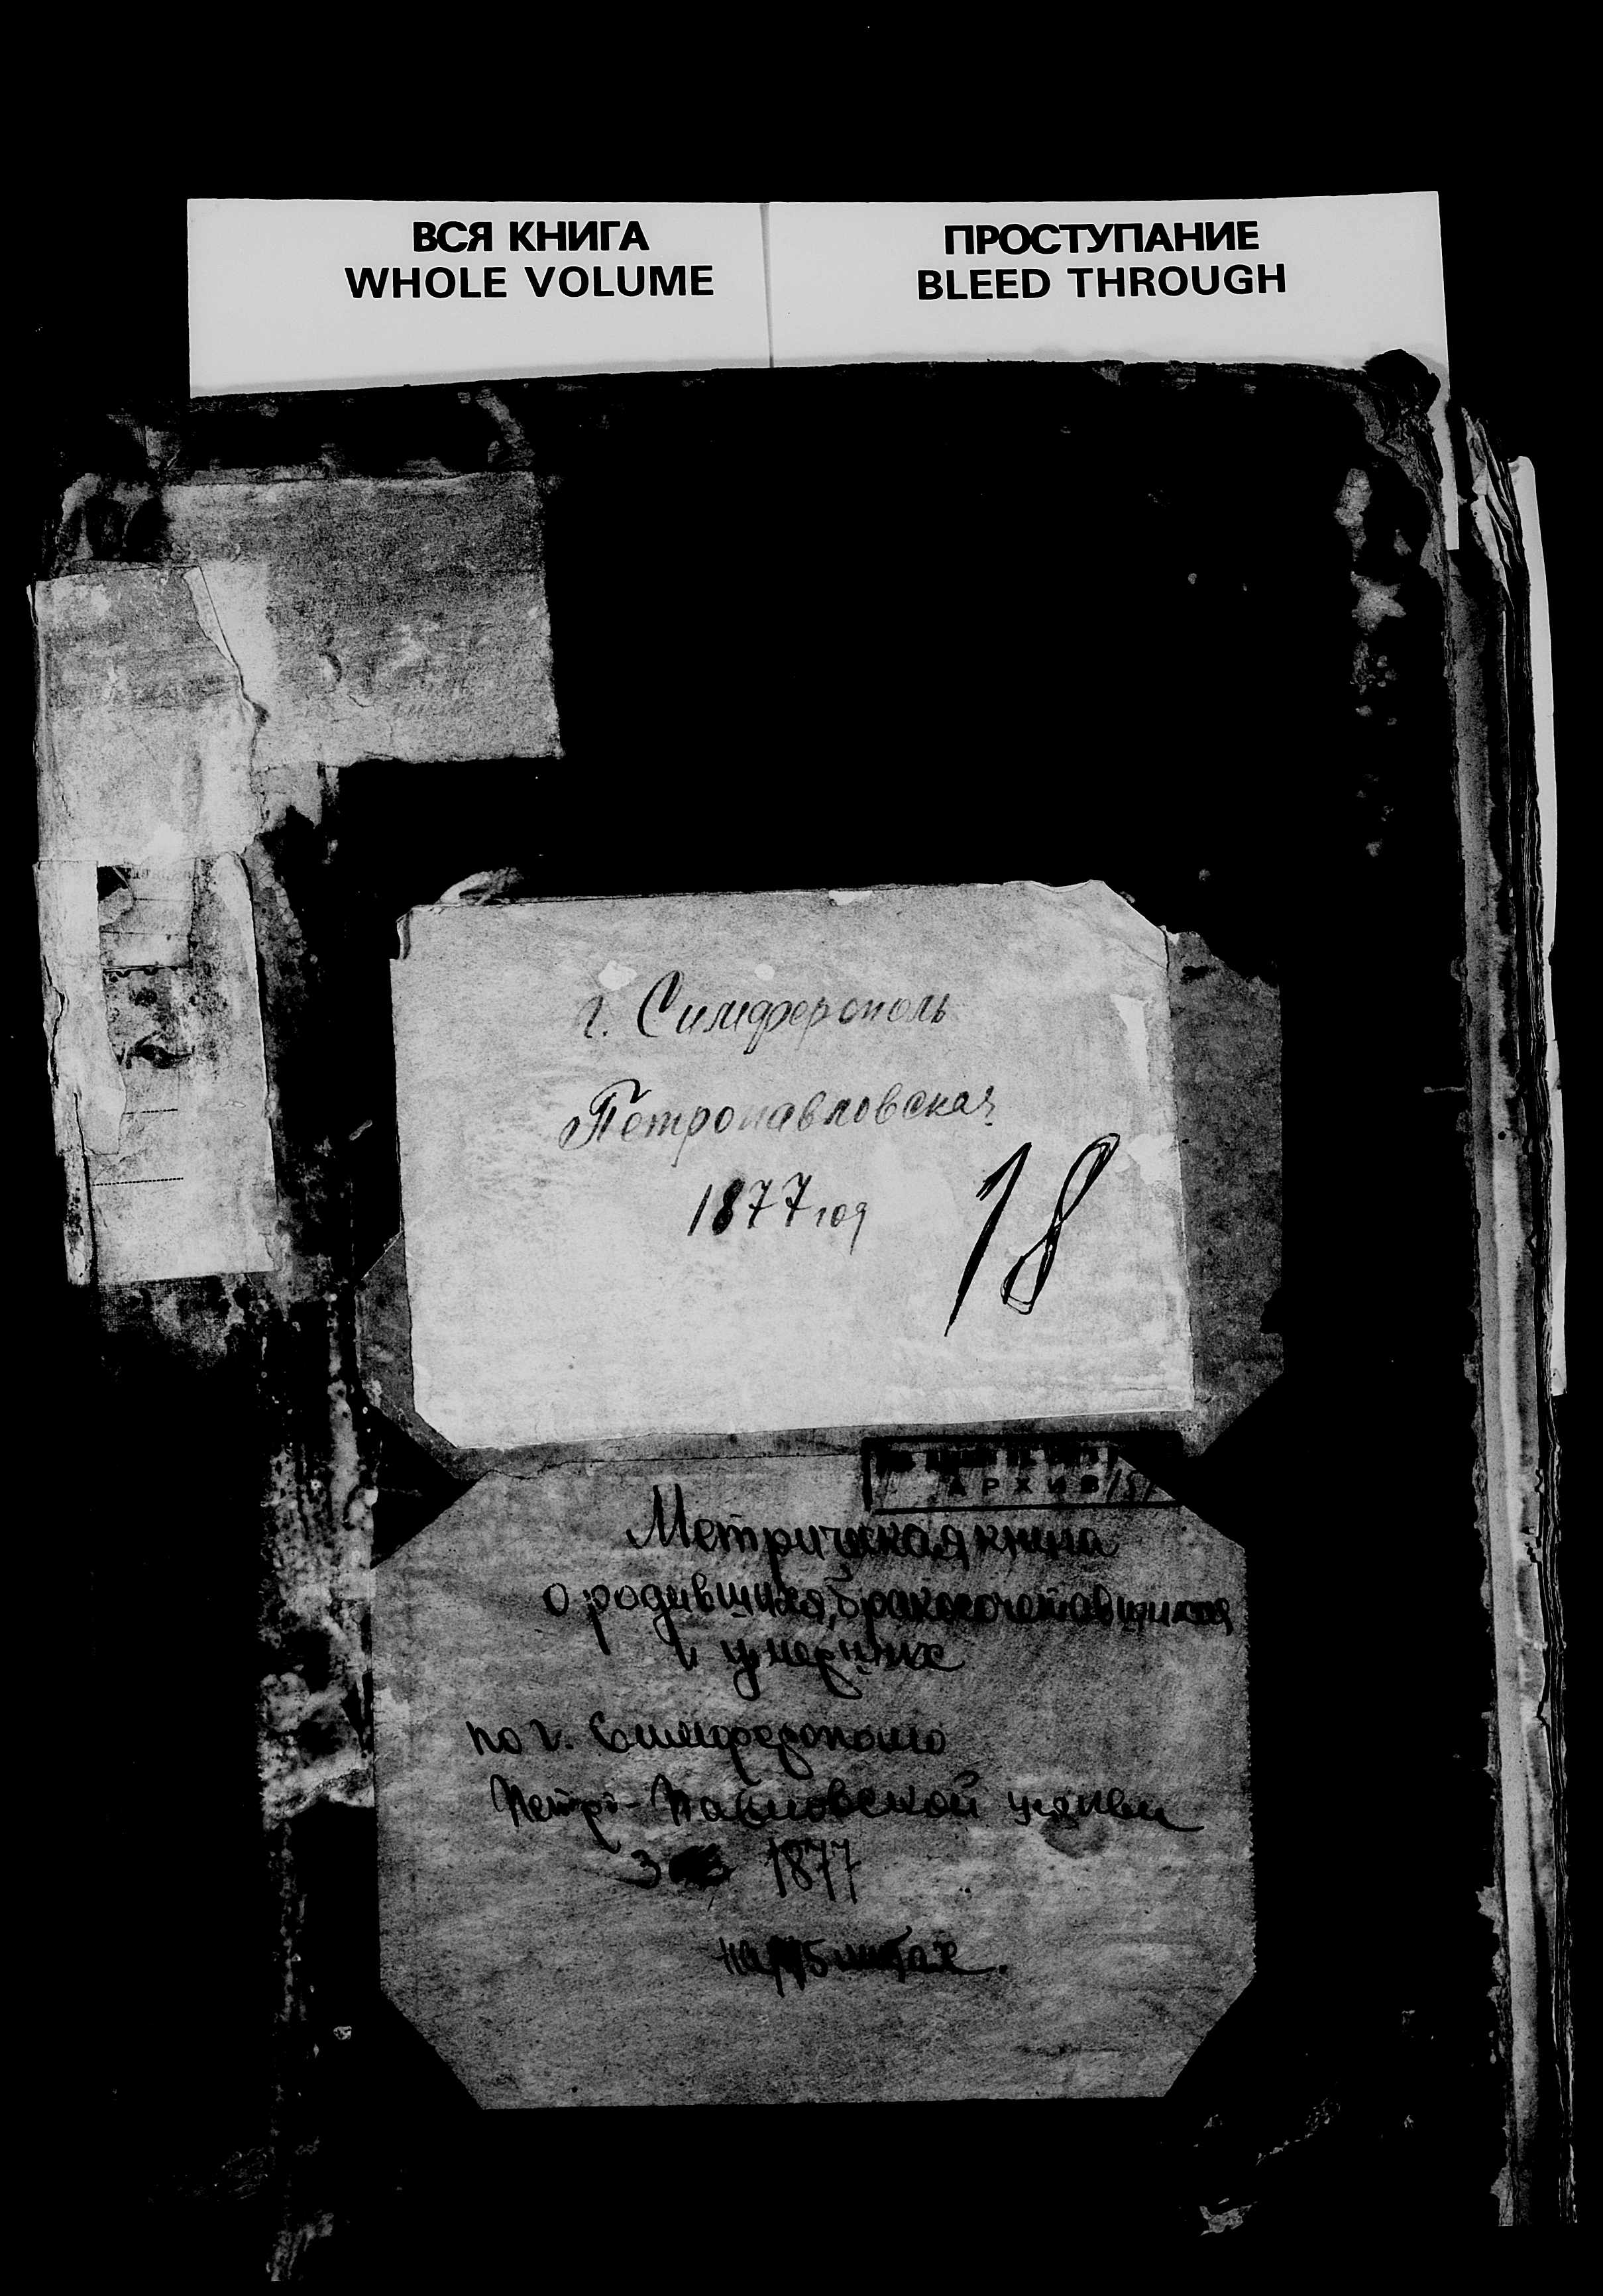 ВСЯ КНИГА
WHOLE VOLUME
ПРОСТУПАНИЕ
BLEED THROUGH
г. Симферополь
Петропавловская
1877 год
18
АРХИВ
Метрическая книга
о родившихся, бракосочетавшихся
и умерших
по г. Симферополю
Петро-Павловской церкви
за 1877
листах.